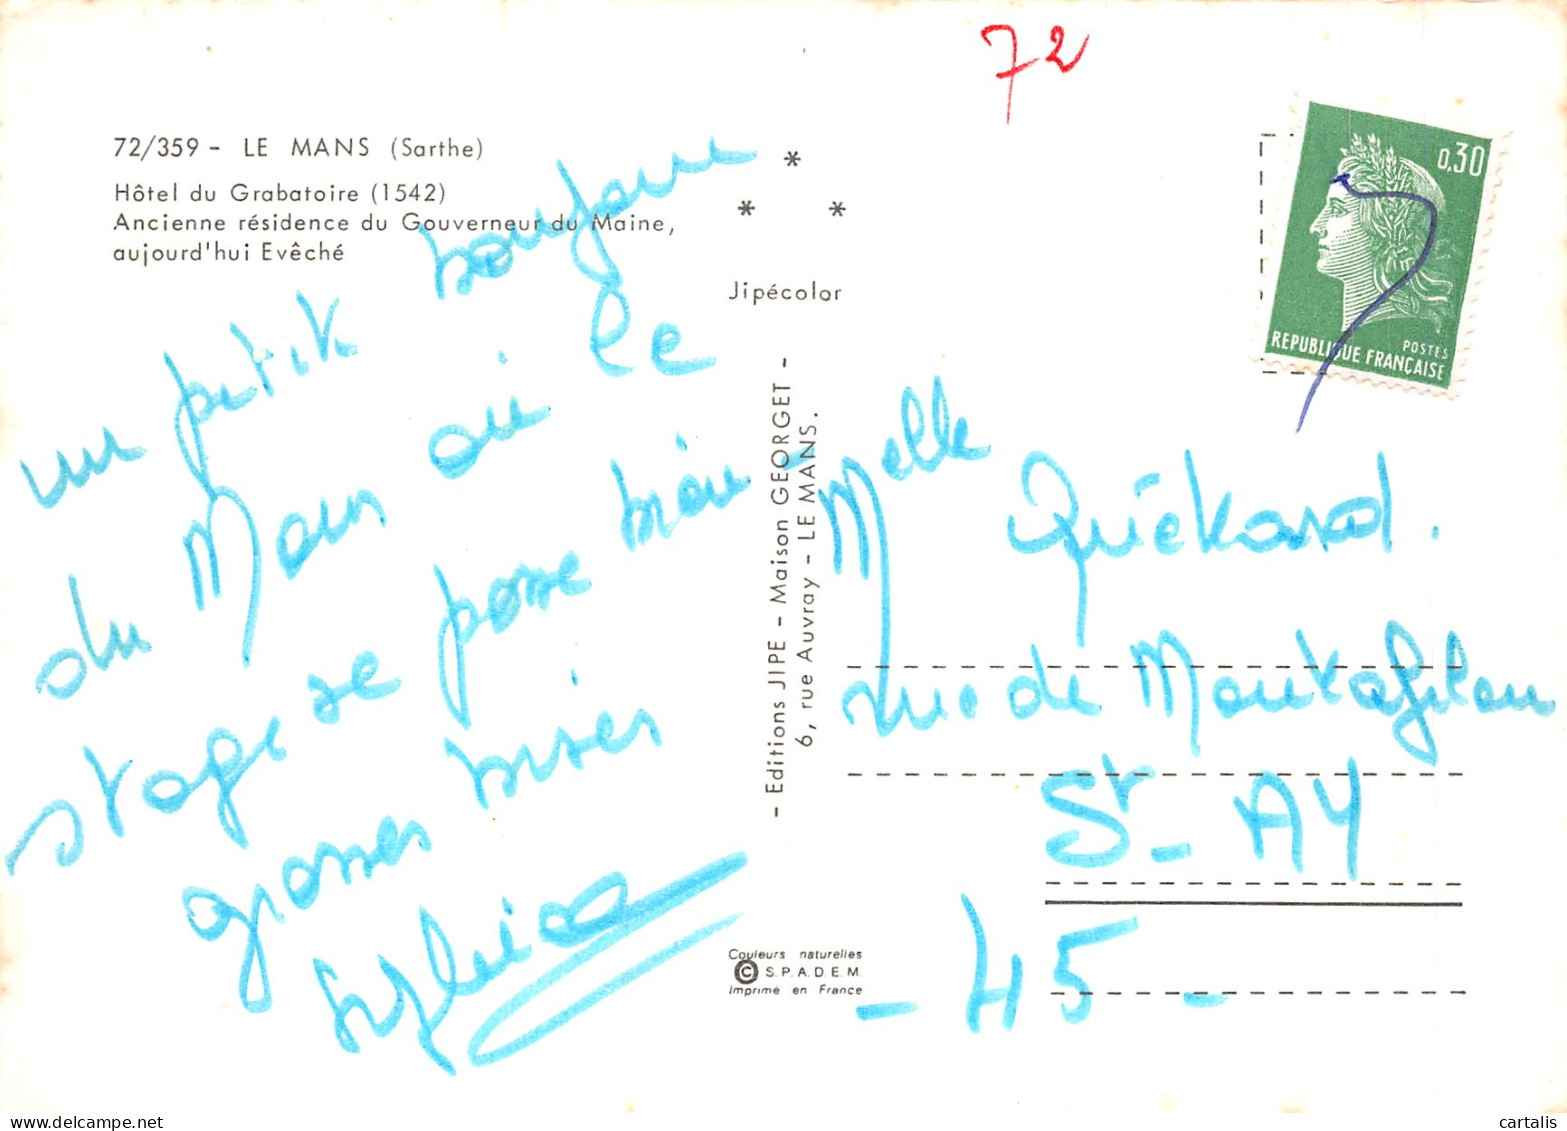 72
72/359 - LE MANS (Sarthe)
Hôtel du Grabatoire (1542)
Ancienne résidence du Gouverneur du Maine,
aujourd'hui Evêché
un petit bonjour
du Mans où le
stage se passe bien.
grosses bises
Sylvia
* * *
Jipécolor
- Editions JIPE - Maison GEORGET -
6, rue Auvray - LE MANS.
Couleurs naturelles
© S.P.A.D.E.M.
Imprimé en France
0,30
POSTES
REPUBLIQUE FRANÇAISE
Melle
rue de
St - AY
- 45 -
cartalis
delcampe.net